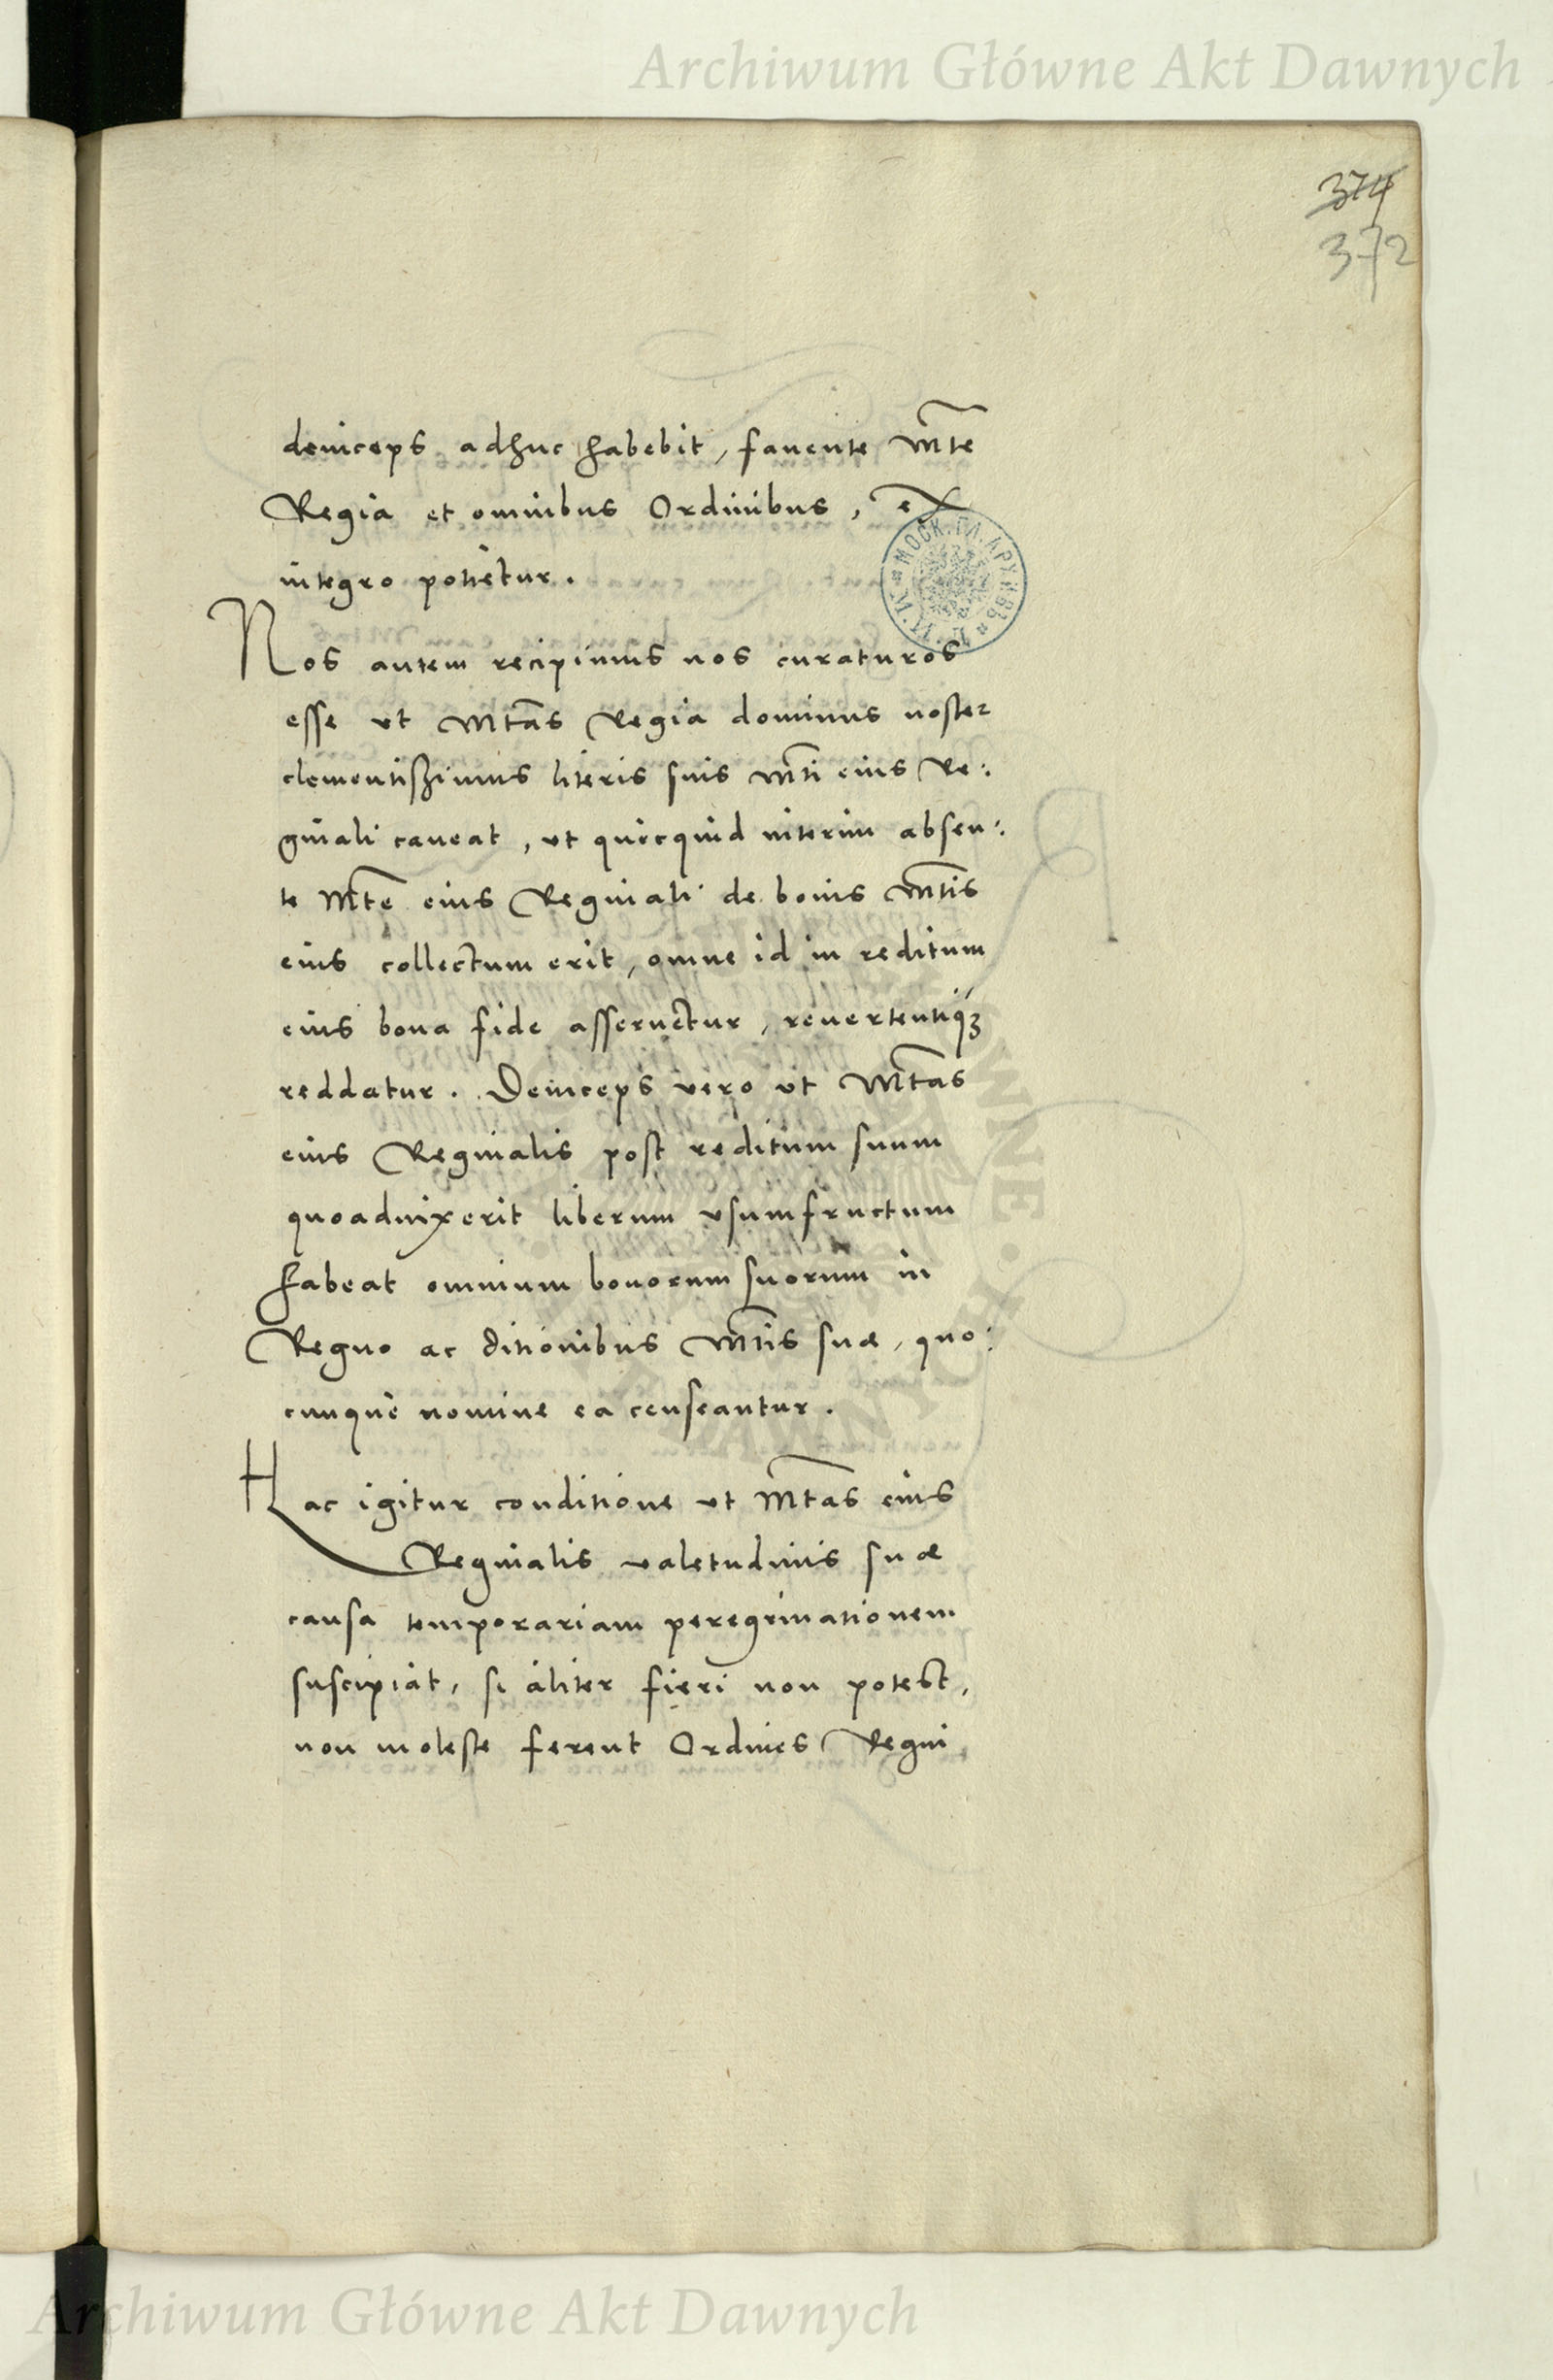 Archiwum Główne Akt Dawnych
374
372
deinceps adhuc habebit, fauente M͠te
Regia et omnibus Ordinibus, ex
integro potietur.
Nos autem recipimus nos curaturos
esse vt Mt͠as Regia dominus noster
clementißimus literis suis M͠ti eius Re:
ginali caueat, vt quicquid interim absen:
te M͠te eius Reginali de bonis M͠tis
eius collectum erit, omne id in reditum
eius bona fide asseruetur, reuertentiqꝫ
reddatur. Deinceps vero vt Mt͠as
eius Reginalis post reditum suum
quoaduixerit liberum vsumfructum
habeat omnium bonorum suorum in
Regno ac ditionibus M͠tis suæ, quo:
cunque nomine ea censeantur.
Hac igitur conditione vt M͠tas eius
Reginalis valetudinis suæ
causa temporariam peregrinationem
suscipiat, si aliter fieri non potest,
non moleste ferent Ordines Regni
МОСК. ГЛ. АРХИВЪ
Archiwum Główne Akt Dawnych